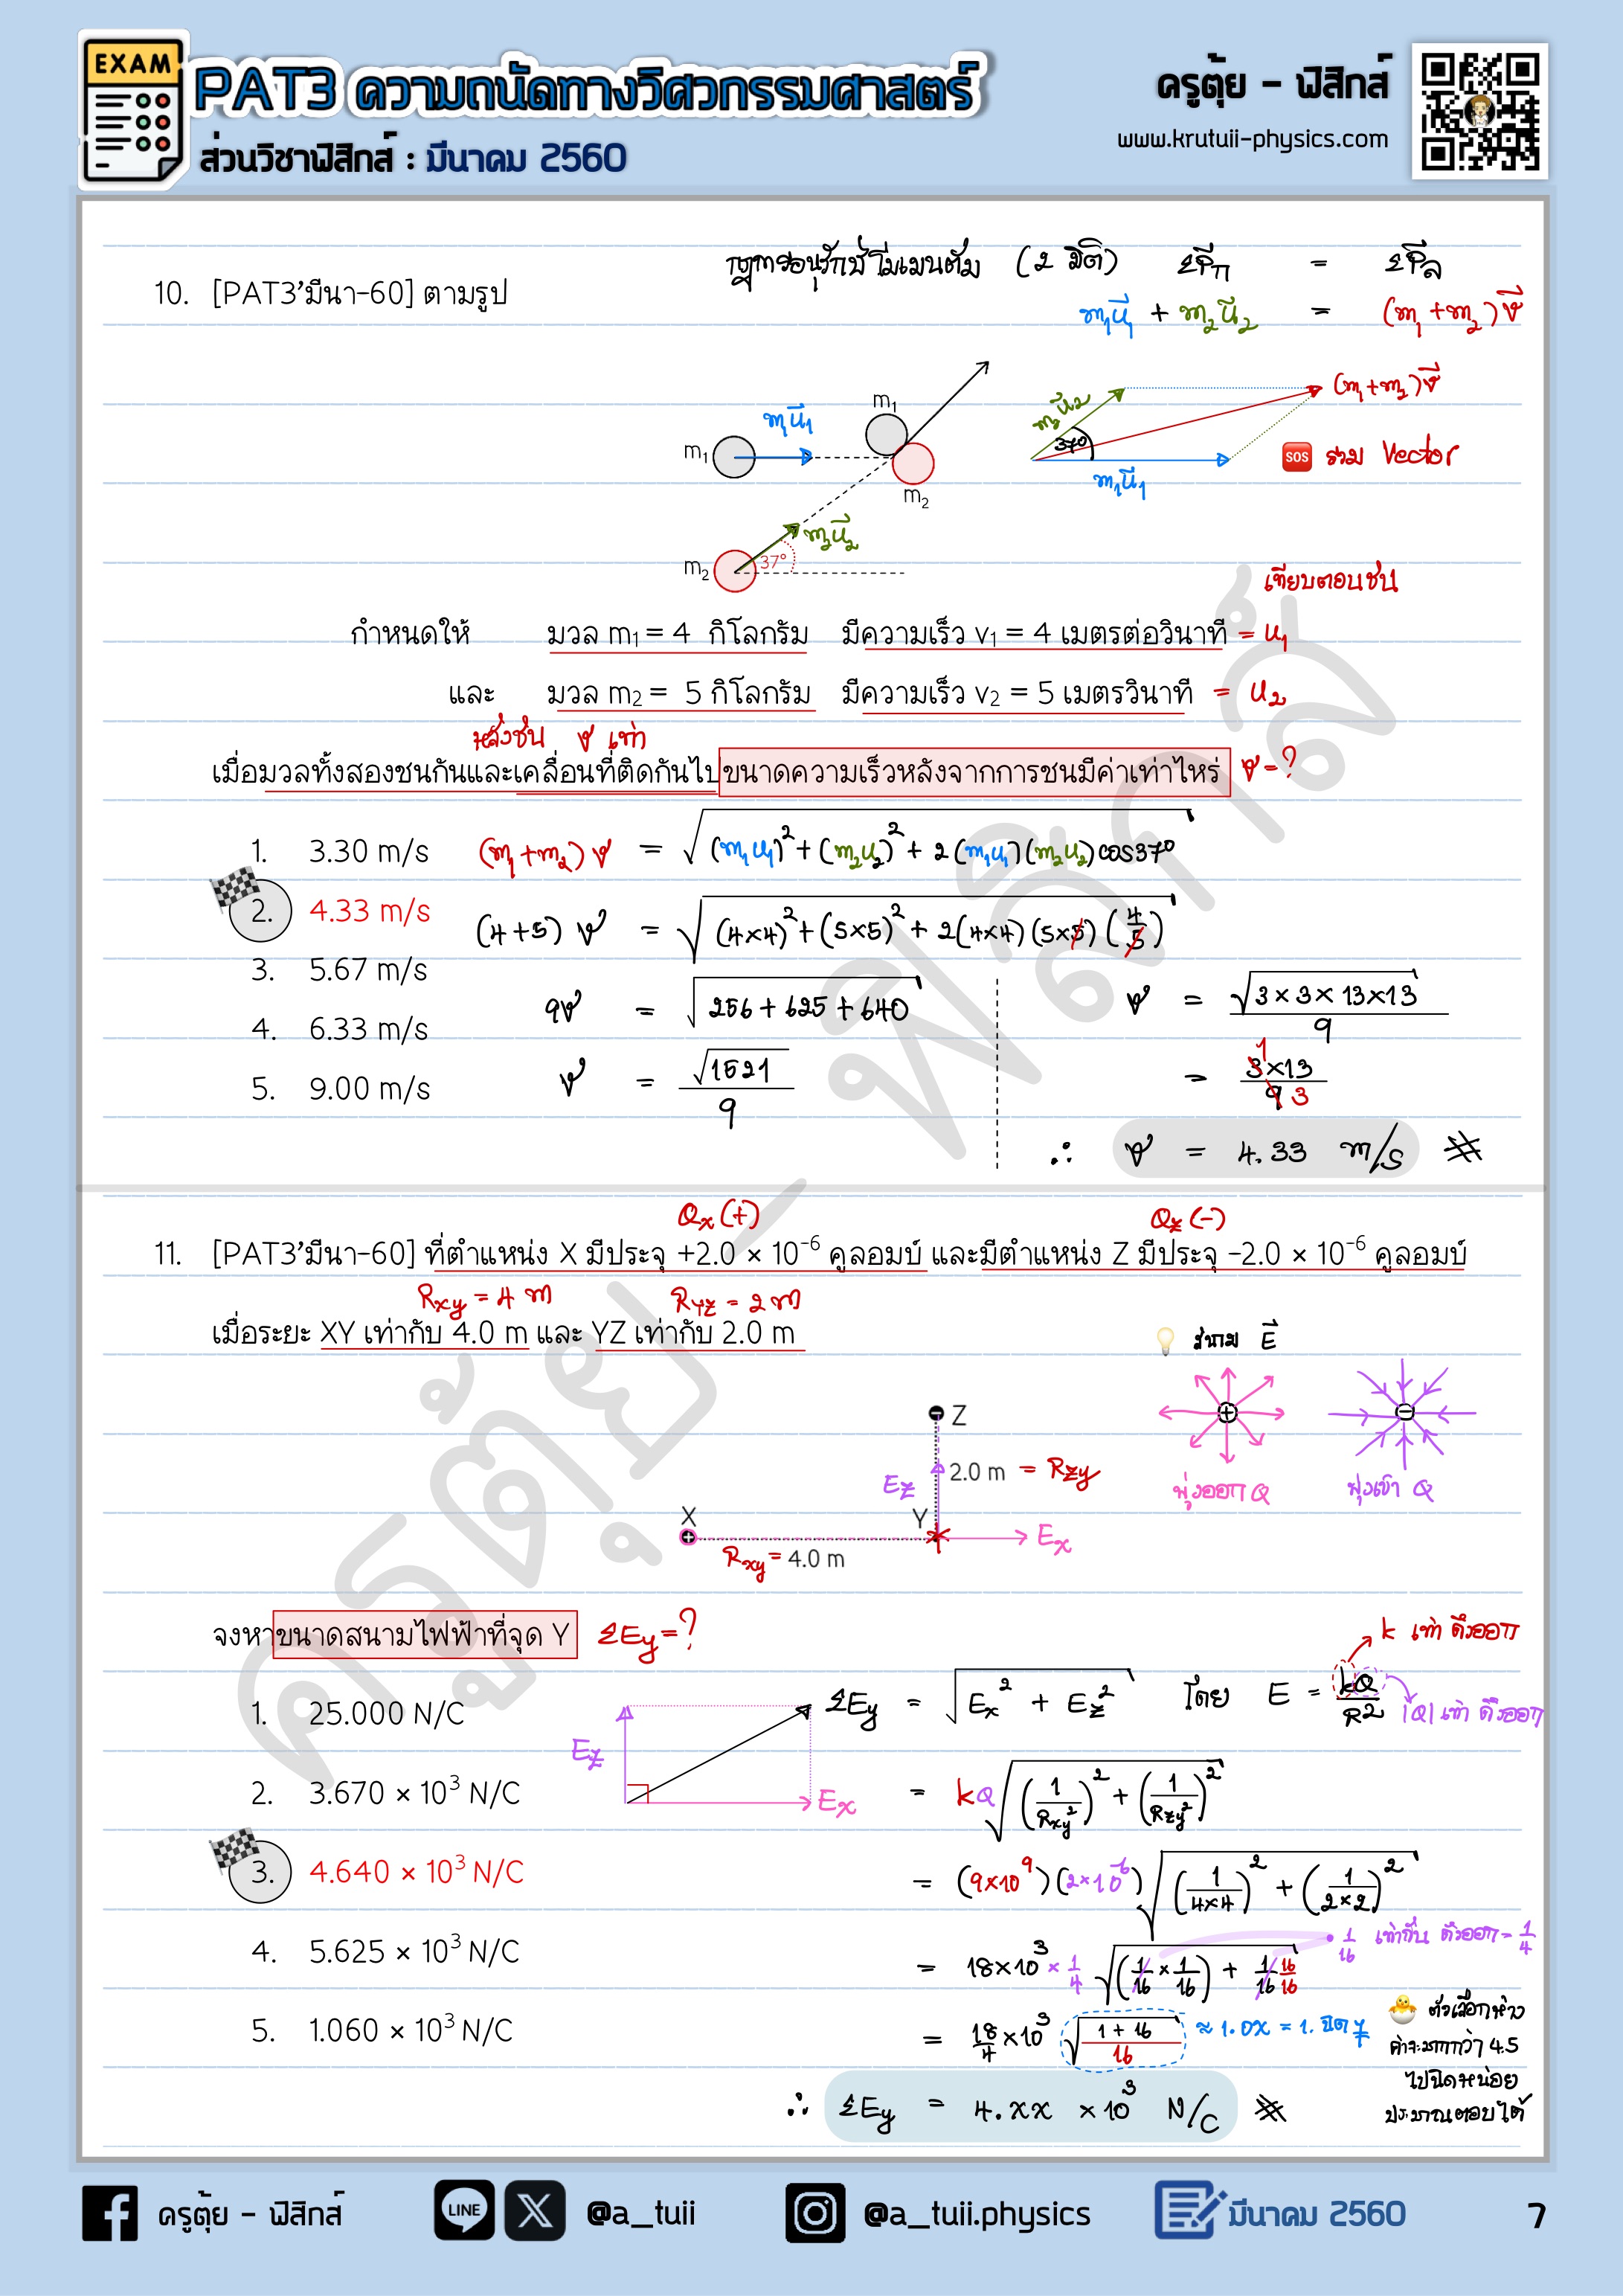 EXAM
PAT3 ความถนัดทางวิศวกรรมศาสตร์
ส่วนวิชาฟิสิกส์ : มีนาคม 2560
ครูตุ้ย - ฟิสิกส์
www.krutuii-physics.com
กฎการอนุรักษ์โมเมนตัม (2 มิติ) Σp⃗ก = Σp⃗ล
10. [PAT3'มีนา-60] ตามรูป
m₁u⃗₁ + m₂u⃗₂ = (m₁+m₂)v⃗
m₁
m₁u⃗₁
m₁
m₂
m₂
m₂u⃗₂
37°
m₂u⃗₂
37°
m₁u⃗₁
(m₁+m₂)v⃗
SOS รวม Vector
เทียบตอนชน
กำหนดให้ มวล m₁ = 4 กิโลกรัม มีความเร็ว v₁ = 4 เมตรต่อวินาที = u₁
และ มวล m₂ = 5 กิโลกรัม มีความเร็ว v₂ = 5 เมตรวินาที = u₂
หลังชน v เท่า
เมื่อมวลทั้งสองชนกันและเคลื่อนที่ติดกันไปขนาดความเร็วหลังจากการชนมีค่าเท่าไหร่ v=?
1. 3.30 m/s
2. 4.33 m/s
3. 5.67 m/s
4. 6.33 m/s
5. 9.00 m/s
(m₁+m₂)v = √((m₁u₁)² + (m₂u₂)² + 2(m₁u₁)(m₂u₂)cos37°)
(4+5)v = √((4×4)² + (5×5)² + 2(4×4)(5×5)(4/5))
9v = √(256 + 625 + 640)
v = √1521/9
v = √(3×3×13×13)/9
= 3×13/9 1 3
∴ v = 4.33 m/s
Qx (+)
Qz (-)
11. [PAT3'มีนา-60] ที่ตำแหน่ง X มีประจุ +2.0 × 10⁻⁶ คูลอมบ์ และมีตำแหน่ง Z มีประจุ -2.0 × 10⁻⁶ คูลอมบ์
Rxy = 4 m Ryz = 2 m
เมื่อระยะ XY เท่ากับ 4.0 m และ YZ เท่ากับ 2.0 m
สนาม E⃗
+
-
พุ่งออก Q
พุ่งเข้า Q
Z
2.0 m = Rzy
Ez
X
Y
Ex
Rxy = 4.0 m
จงหาขนาดสนามไฟฟ้าที่จุด Y ΣEy=?
1. 25.000 N/C
2. 3.670 × 10³ N/C
3. 4.640 × 10³ N/C
4. 5.625 × 10³ N/C
5. 1.060 × 10³ N/C
Ez
Ex
k เท่า ดึงออก
ΣEy = √(Ex² + Ez²) โดย E = kQ/R²
|Q| เท่า ดึงออก
= kQ√((1/Rxy²)² + (1/Rzy²)²)
= (9×10⁹)(2×10⁻⁶)√((1/4×4)² + (1/2×2)²)
= 18×10³ × 1/4 √((1/16 × 1/16) + 1/16 16/16)
1/16 เท่ากัน ดึงออก = 1/4
= 18/4 ×10³ √((1+16)/16) ≈ 1.0x = 1.นิดๆ
ตัวเลือกห่าง
ค่าจะมากกว่า 4.5
ไปนิดหน่อย
ประมาณตอบได้
∴ ΣEy = 4.xx × 10³ N/C
ครูตุ้ย_ฟิสิกส์
ครูตุ้ย - ฟิสิกส์
LINE
@a_tuii
@a_tuii.physics
มีนาคม 2560
7